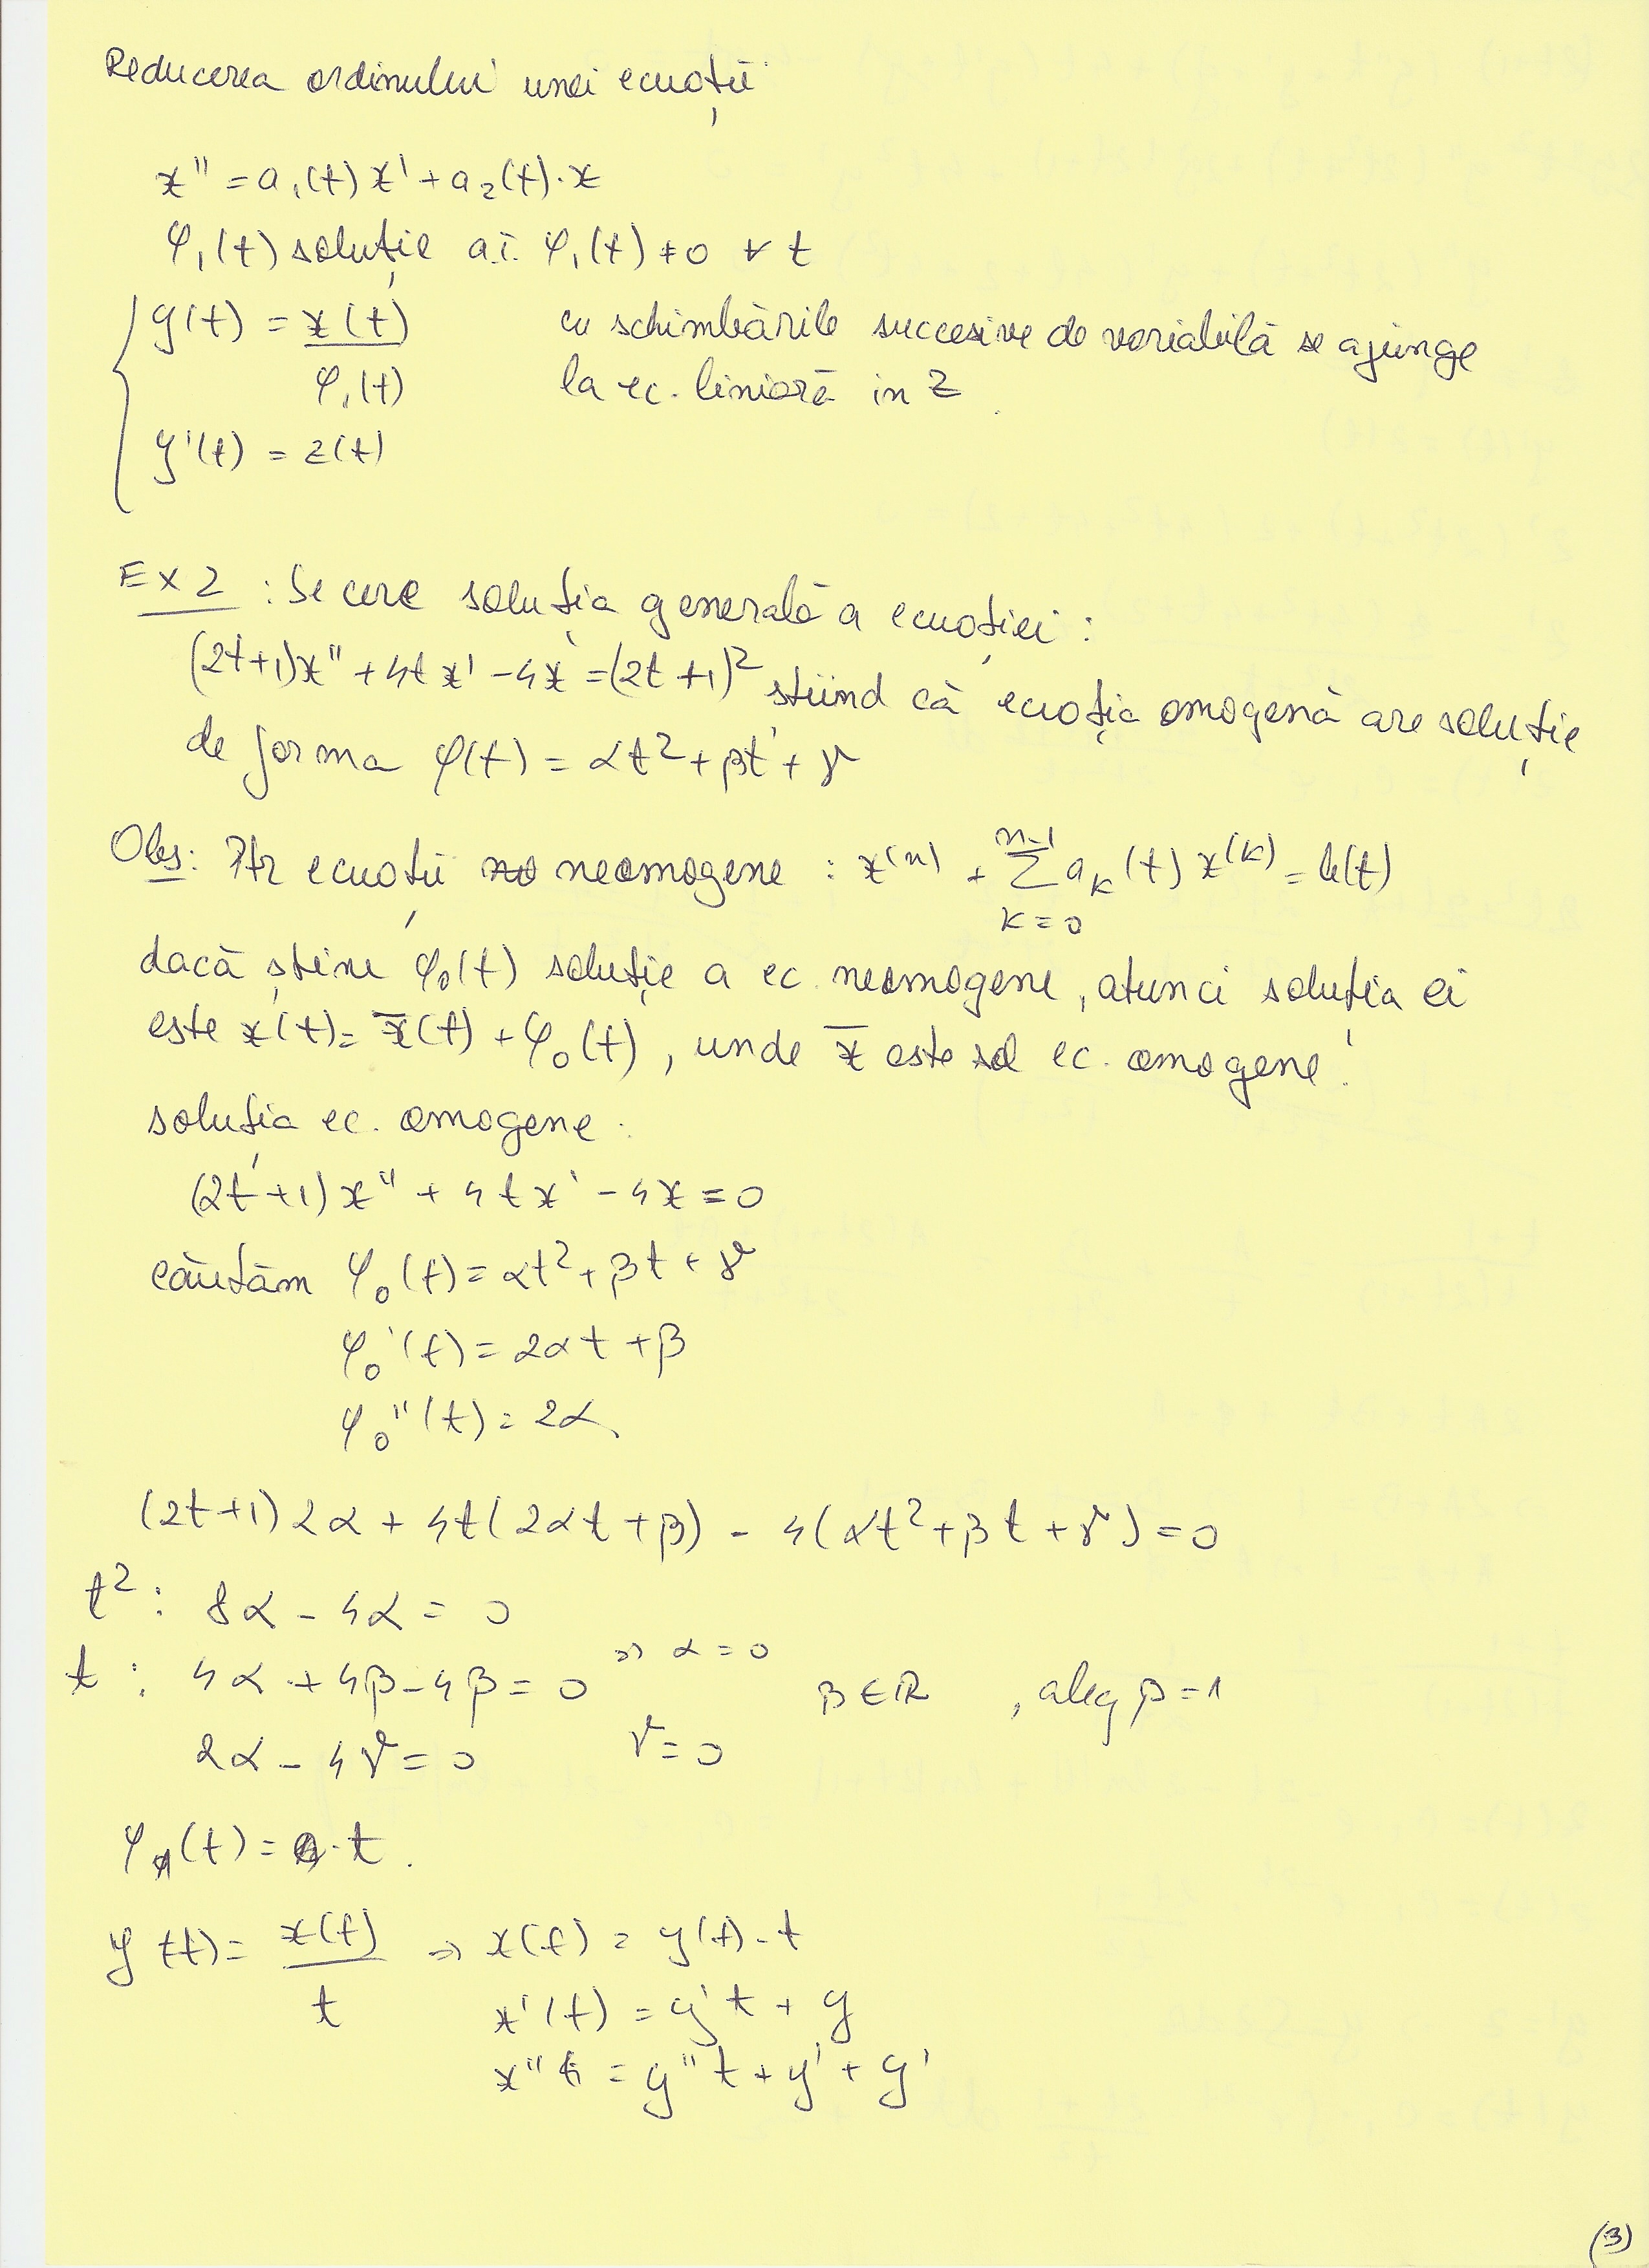 Reducerea ordinului unei ecuații
x'' = a₁(t) x' + a₂(t)·x
φ₁(t) soluție a.î. φ₁(t) ≠ 0 ∀ t
y(t) = x(t) / φ₁(t)
cu schimbările succesive de variabilă se ajunge
la ec. liniară in z
y'(t) = z(t)
Ex 2 : Se cere soluția generală a ecuației :
(2t+1)x'' + 4t x' - 4x = (2t+1)² știind că ecuația omogenă are soluție
de forma φ(t) = αt² + βt + γ
Obs: Ptr ecuații neomogene : x⁽ⁿ⁾ + Σ_{k=0}^{n-1} a_k(t) x^{(k)} = b(t)
dacă știm φ₀(t) soluție a ec. neomogene, atunci soluția ei
este x(t) = x̄(t) + φ₀(t), unde x̄ este sol ec. omogene!
soluția ec. omogene.
(2t+1) x'' + 4t x' - 4x = 0
căutăm φ₀(t) = αt² + βt + γ
φ₀'(t) = 2αt + β
φ₀''(t) = 2α
(2t+1) 2α + 4t(2αt + β) - 4(αt² + βt + γ) = 0
t² : 8α - 4α = 0
t : 4α + 4β - 4β = 0 ⇒ α = 0 β ∈ ℝ , aleg β = 1
2α - 4γ = 0 γ = 0
φ₁(t) = t.
y(t) = x(t) / t ⇒ x(t) = y(t)·t
x'(t) = y't + y
x'' = y''t + y' + y'
(3)